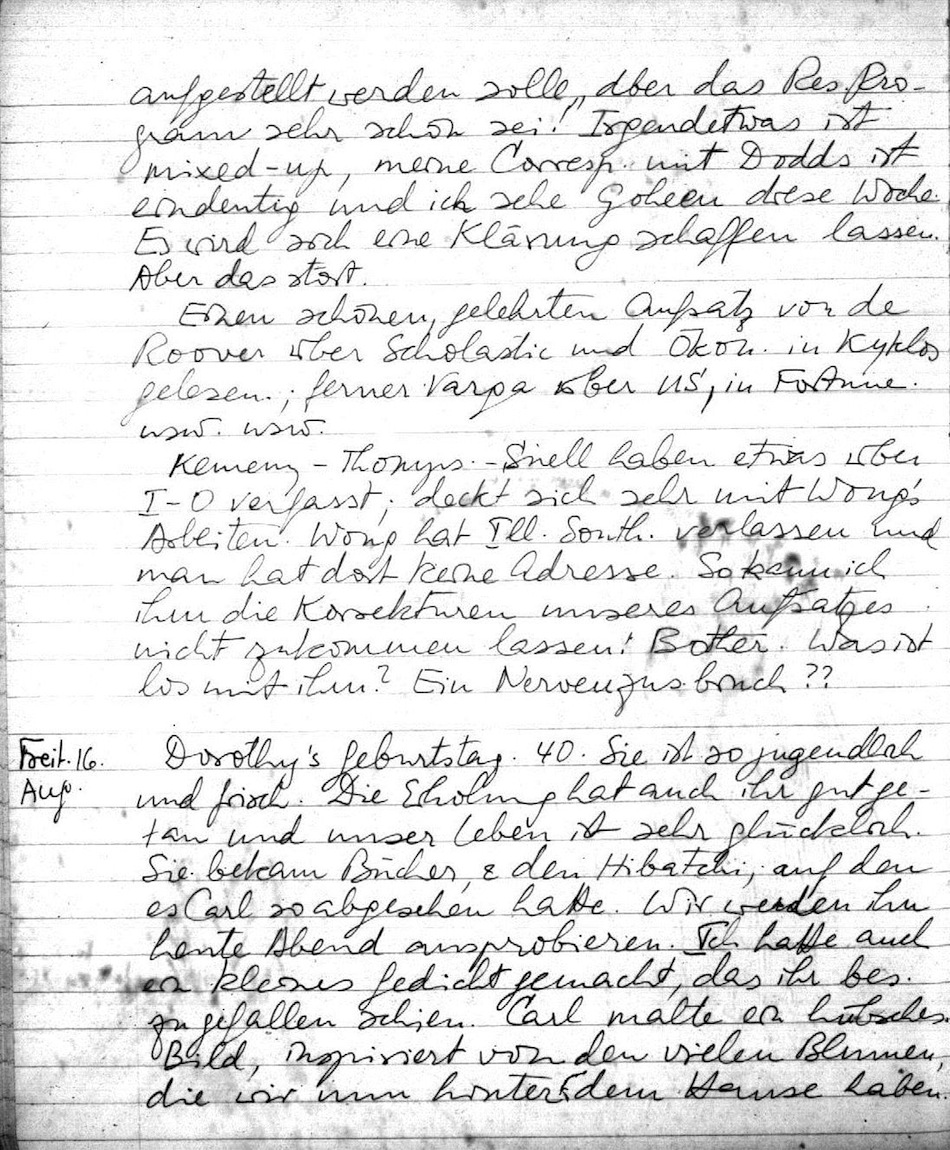 aufgestellt werden solle, aber das Res. Pro-
gram sehr schön sei! Irgendetwas ist
mixed-up, meine Corresp. mit Dodds ist
eindeutig und ich sehe Goheen diese Woche.
Es wird sich eine Klärung schaffen lassen.
Aber das stört.
Einen schönen, gelehrten Aufsatz von de
Roover über Scholastic und Ökon. in Kyklos
gelesen.; ferner Varga über US, in Fortune.
usw. usw.
Kemeny – Thomps. – Snell haben etwas über
I-O verfasst; deckt sich sehr mit Wong's
Arbeiten. Wong hat Ill. South. verlassen und
man hat dort keine Adresse. So kann ich
ihm die Korrekturen unseres Aufsatzes
nicht zukommen lassen! Bother. Was ist
los mit ihm? Ein Nervenzus.bruch ??
Freit. 16. Dorothy's Geburtstag. 40. Sie ist so jugendlich
Aug. und frisch. Die Erholung hat auch ihr gut ge-
tan und unser Leben ist sehr glücklich.
Sie bekam Bücher, & den Hibatchi, auf den
es Carl so abgesehen hatte. Wir werden ihn
heute Abend ausprobieren. Ich hatte auch
ein kleines Gedicht gemacht, das ihr bes.
zu gefallen schien. Carl malte ein hübsches
Bild, inspiriert von den vielen Blumen,
die wir nun hinter dem Hause haben.